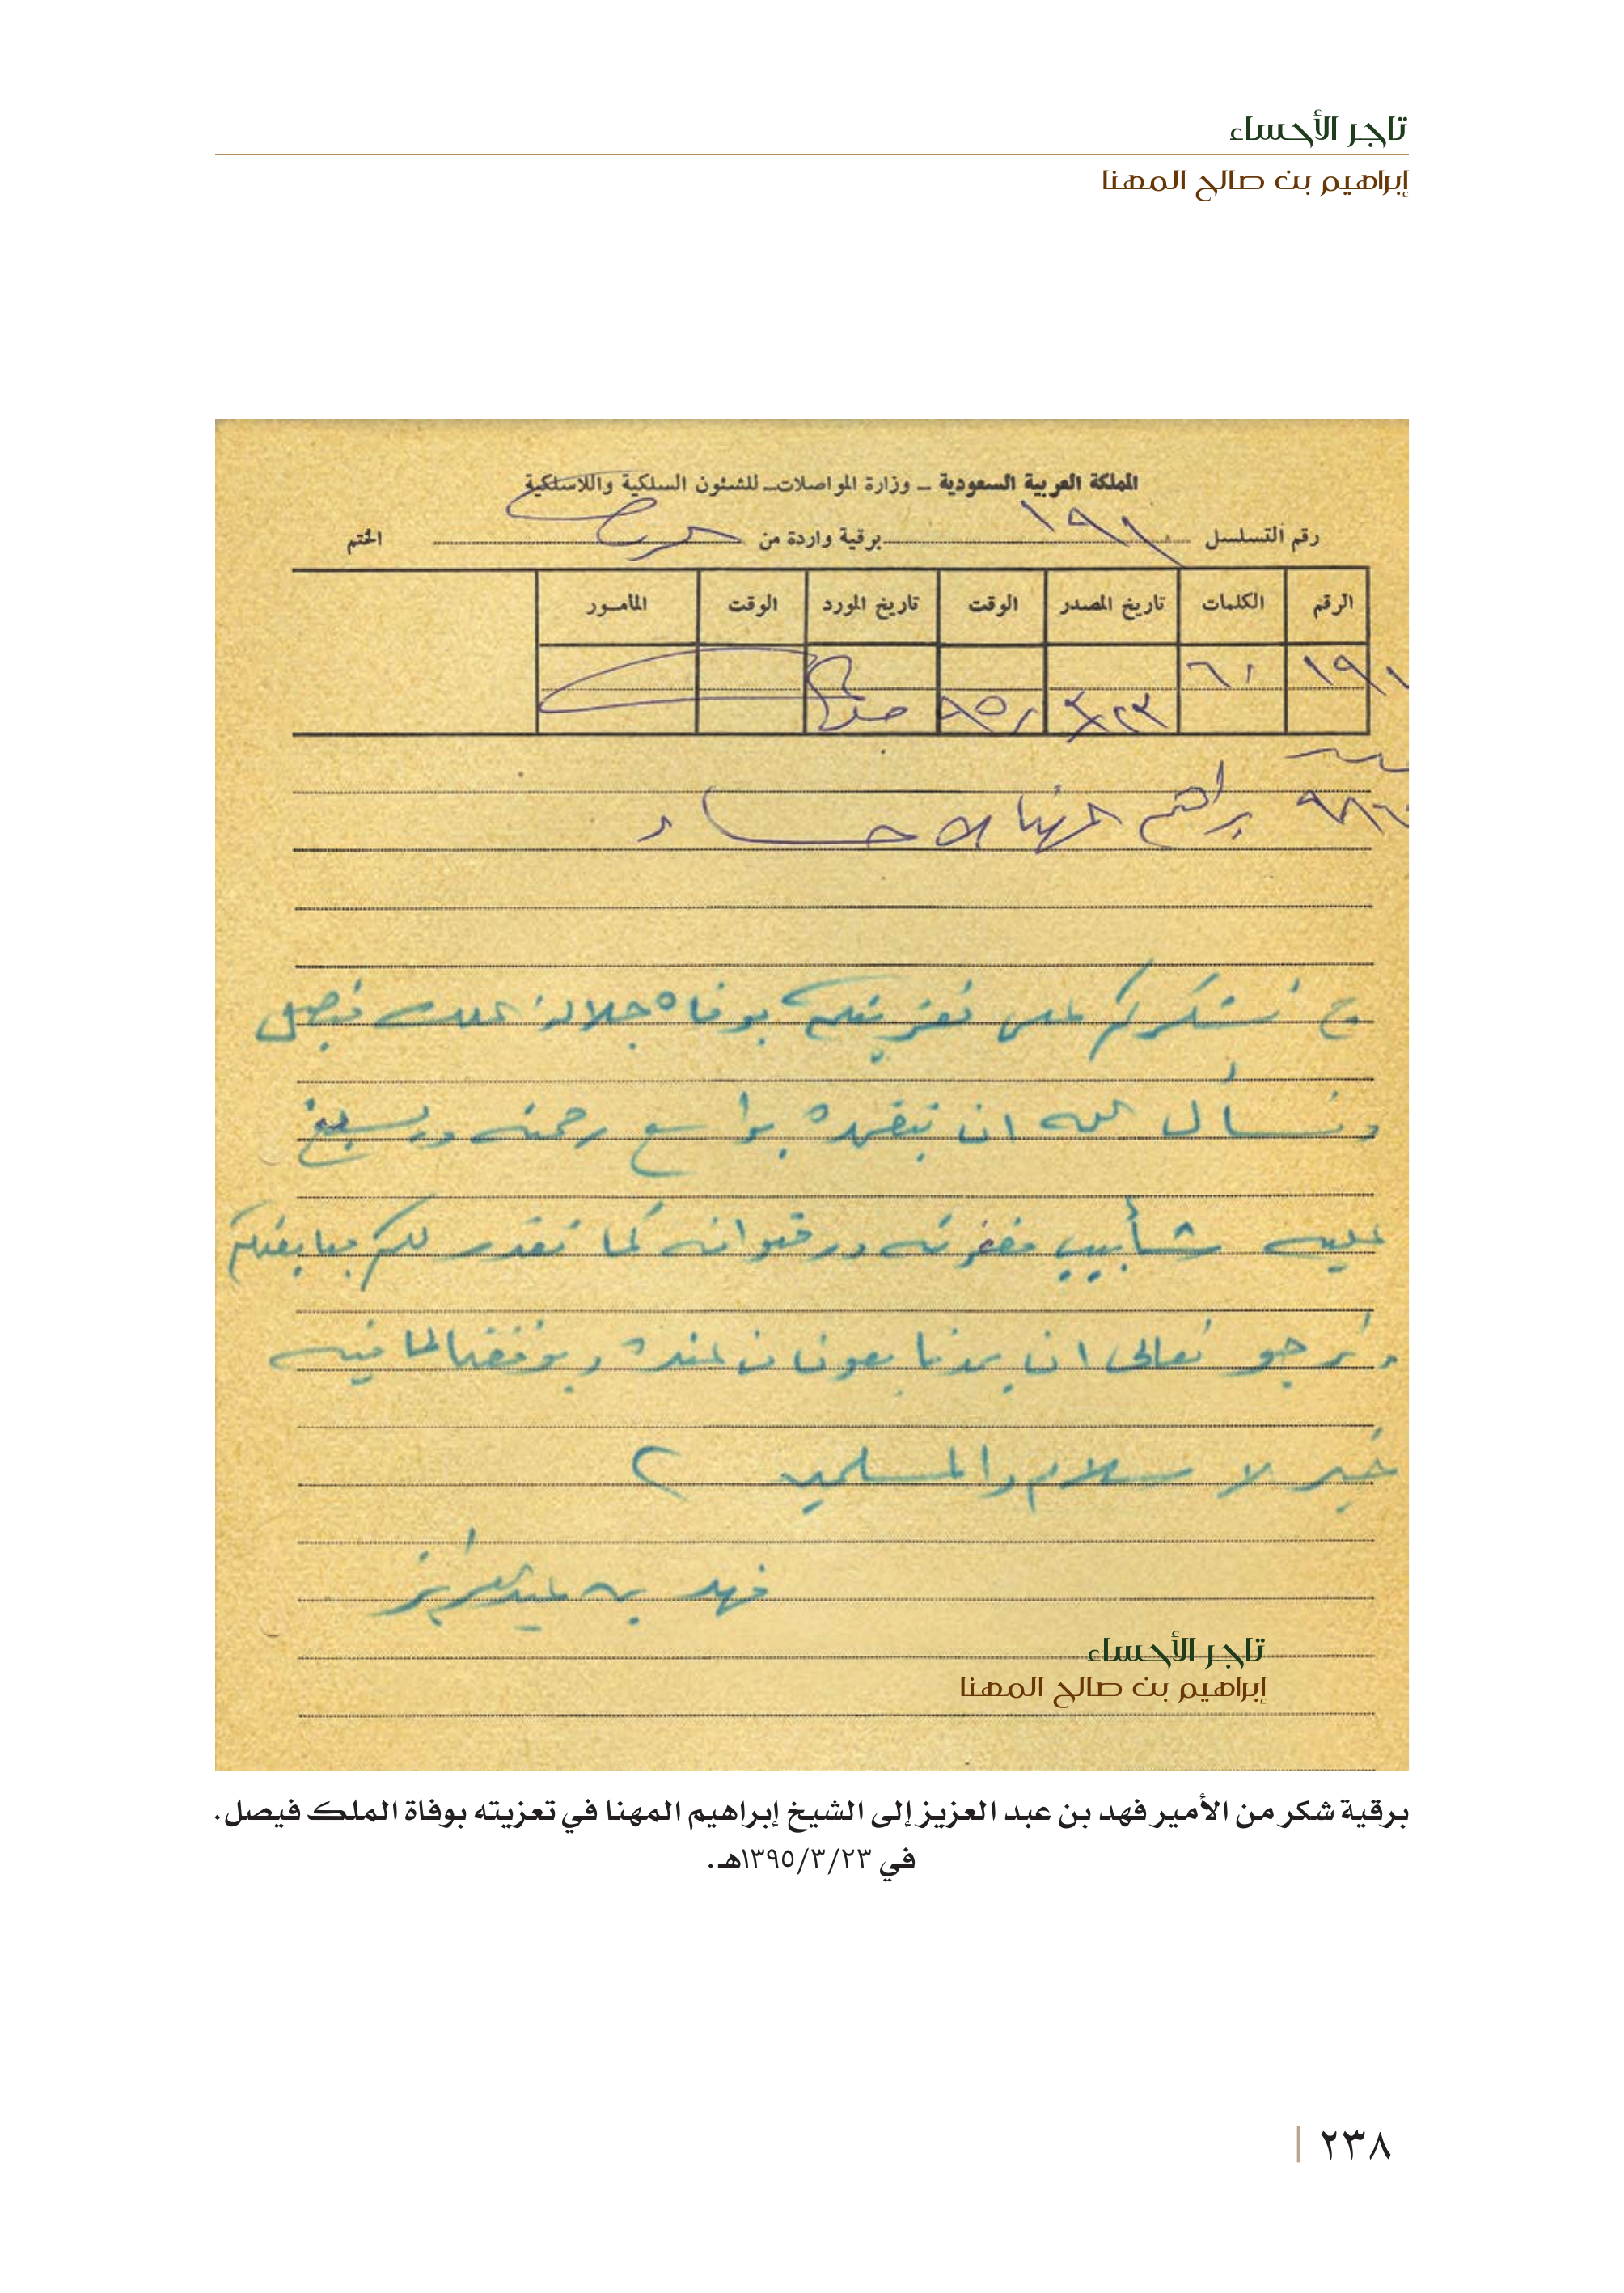 تاجر الأحساء
إبراهيم بن صالح المهنا
المملكة العربية السعودية ــ وزارة المواصلات ــ للشئون السلكية واللاسلكية
رقم التسلسل ١٩١ برقية واردة من الختم
الرقم الكلمات تاريخ المصدر الوقت تاريخ المورد الوقت المأمـور
١٩١ ٦١
٣/٢٣ ٩٥
براهيم المهنا الاحساء
ج نشكركم على تعزيتكم بوفاة جلالة الملك فيصل
ونسأل الله ان يتغمده بواسع رحمته ويسبغ
عليه شأبيب مغفرته ورضوانه كما نقدر لكم مبايعتكم
ونرجو تعالى ان يمدنا بعونا من عنده ويوفقنا لما فيه
خير الاسلام والمسلمين
فهد بن عبدالعزيز
تاجر الأحساء
إبراهيم بن صالح المهنا
برقية شكر من الأمير فهد بن عبد العزيز إلى الشيخ إبراهيم المهنا في تعزيته بوفاة الملك فيصل.
في ١٣٩٥/٣/٢٣هـ.
٢٣٨